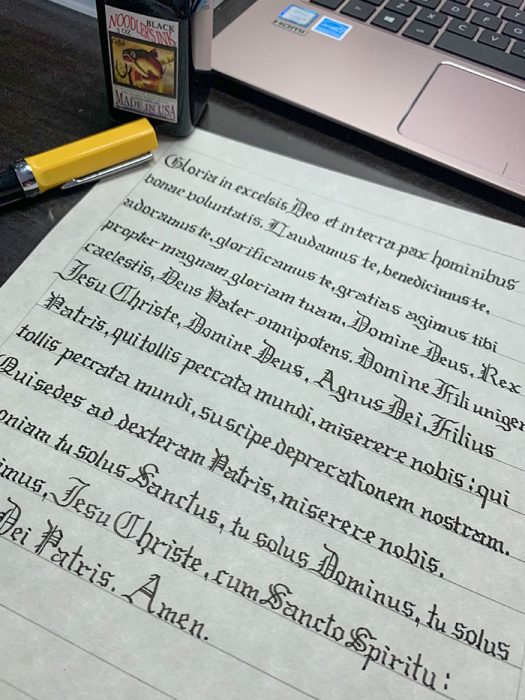 BLACK
NOODLER'S INK
3 OZ
MADE IN USA
HDMI
Gloria in excelsis Deo et in terra pax hominibus
bonae voluntatis. Laudamus te, benedicimus te,
adoramus te, glorificamus te, gratias agimus tibi
propter magnam gloriam tuam, Domine Deus, Rex
caelestis, Deus Pater omnipotens. Domine Fili
Jesu Christe, Domine Deus, Agnus Dei, Filius
Patris, qui tollis peccata mundi, miserere nobis; qui
tollis peccata mundi, suscipe deprecationem nostram.
Qui sedes ad dexteram Patris, miserere nobis.
oniam tu solus Sanctus, tu solus Dominus, tu solus
imus, Jesu Christe, cum Sancto Spiritu:
Dei Patris. Amen.